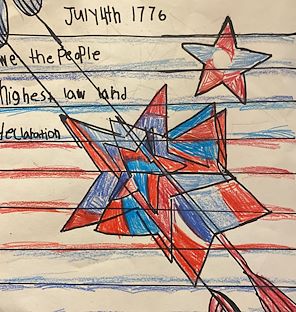 July 4th 1776
we the People
highest law land
declaration